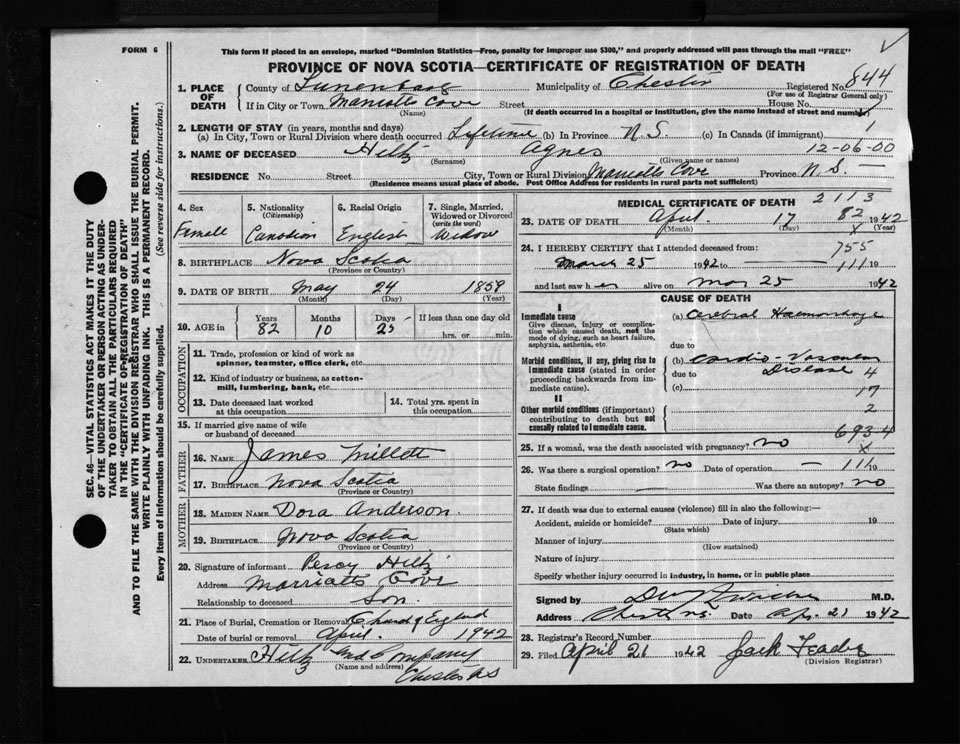 FORM 6
This form if placed in an envelope, marked "Dominion Statistics—Free, penalty for improper use $300," and properly addressed will pass through the mail "FREE"
PROVINCE OF NOVA SCOTIA—CERTIFICATE OF REGISTRATION OF DEATH
SEC. 46—VITAL STATISTICS ACT MAKES IT THE DUTY
OF THE UNDERTAKER OR PERSON ACTING AS UNDER-
TAKER TO OBTAIN ALL THE PARTICULARS REQUIRED
IN THE "CERTIFICATE OF REGISTRATION OF DEATH"
AND TO FILE THE SAME WITH THE DIVISION REGISTRAR WHO SHALL ISSUE THE BURIAL PERMIT.
WRITE PLAINLY WITH UNFADING INK. THIS IS A PERMANENT RECORD.
Every item of information should be carefully supplied. (See reverse side for instructions.)
1. PLACE OF DEATH
County of Lunenburg Municipality of Chester Registered No. 844
(For use of Registrar General only)
If in City or Town Marriotts Cove Street House No.
(Name) (If death occurred in a hospital or institution, give the name instead of street and number)
2. LENGTH OF STAY (in years, months and days)
(a) In City, Town or Rural Division where death occurred Lifetime (b) In Province N.S. (c) In Canada (if immigrant) 1
3. NAME OF DECEASED Hiltz Agnes 12-06-00
(Surname) (Given name or names)
RESIDENCE No. Street City, Town or Rural Division Marriotts Cove Province N.S.
(Residence means usual place of abode. Post Office Address for residents in rural parts not sufficient)
4. Sex
Female
5. Nationality
(Citizenship)
Canadian
6. Racial Origin
English
7. Single, Married,
Widowed or Divorced
(write the word)
Widow
8. BIRTHPLACE Nova Scotia
(Province or Country)
9. DATE OF BIRTH May 24 1859
(Month) (Day) (Year)
10. AGE in
Years Months Days If less than one day old
82 10 23 hrs. or min.
OCCUPATION
11. Trade, profession or kind of work as
spinner, teamster, office clerk, etc.
12. Kind of industry or business, as cotton-
mill, lumbering, bank, etc.
13. Date deceased last worked
at this occupation
14. Total yrs. spent in
this occupation
15. If married give name of wife
or husband of deceased
FATHER
16. NAME James Millett
17. BIRTHPLACE Nova Scotia
(Province or Country)
MOTHER
18. MAIDEN NAME Dora Anderson
19. BIRTHPLACE Nova Scotia
(Province or Country)
20. Signature of informant Percy Hiltz
Address Marriotts Cove
Relationship to deceased Son.
21. Place of Burial, Cremation or Removal Church of England
Date of burial or removal April. 1942
22. UNDERTAKER Hiltz and Company
(Name and address) Chester NS
MEDICAL CERTIFICATE OF DEATH 2113
23. DATE OF DEATH April 17 82 1942
(Month) (Day) X (Year)
24. I HEREBY CERTIFY that I attended deceased from: 755
March 25 1942 to 111 19
and last saw her alive on Mar 25 1942
CAUSE OF DEATH
I
Immediate cause
Give disease, injury or complica-
tion which caused death, not the
mode of dying, such as heart failure,
asphyxia, asthenia, etc.
(a) Cerebral Haemorrhage
due to
Morbid conditions, if any, giving rise to
immediate cause (stated in order
proceeding backwards from im-
mediate cause).
(b) Cardio-Vascular
due to Disease 4
(c) 17
II
Other morbid conditions (if important)
contributing to death but not
causally related to immediate cause.
2
6934
25. If a woman, was the death associated with pregnancy? no X
26. Was there a surgical operation? no Date of operation — 111 19
State findings Was there an autopsy? no
27. If death was due to external causes (violence) fill in also the following:—
Accident, suicide or homicide? Date of injury 19
(State which)
Manner of injury
(How sustained)
Nature of injury
Specify whether injury occurred in industry, in home, or in public place
Signed by M.D.
Address Chester N.S. Date Apr. 21 1942
28. Registrar's Record Number
29. Filed April 21 1942 Jack
(Division Registrar)